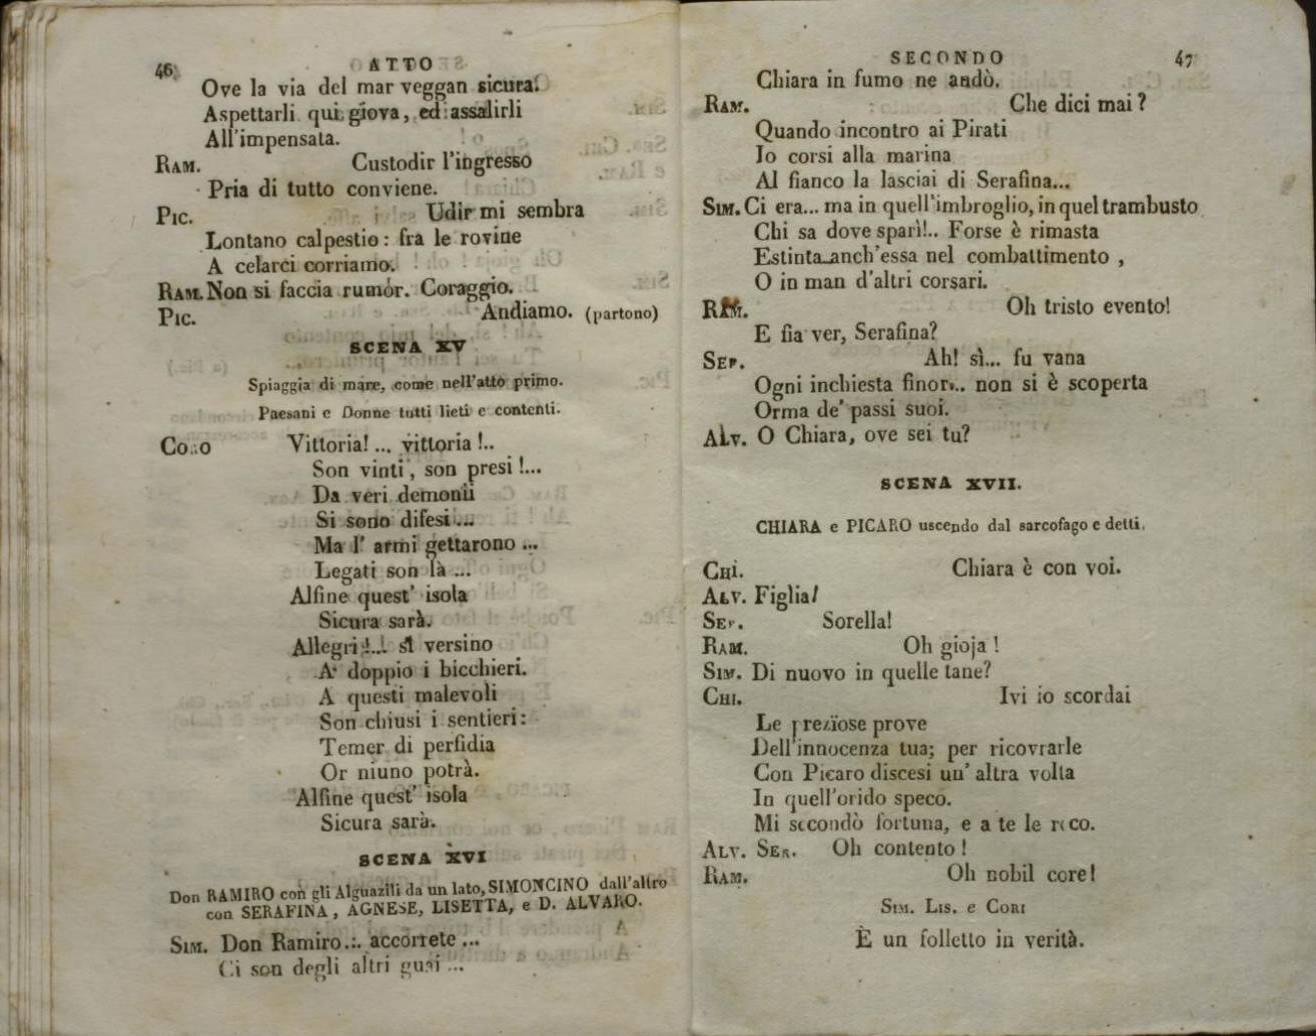 46
ATTO
Ove la via del mar veggan sicura.
Aspettarli qui giova, ed assalirli
All'impensata.
RAM. Custodir l'ingresso
Pria di tutto conviene.
PIC. Udir mi sembra
Lontano calpestio: fra le rovine
A celarci corriamo.
RAM. Non si faccia rumór. Coraggio.
PIC. Andiamo. (partono)
SCENA XV
Spiaggia di mare, come nell'atto primo.
Paesani e Donne tutti lieti e contenti.
Coro Vittoria! ... vittoria !..
Son vinti, son presi !...
Da veri demonii
Si sono difesi ...
Ma l' armi gettarono ...
Legati son là ...
Alfine quest' isola
Sicura sarà.
Allegri !... si versino
A doppio i bicchieri.
A questi malevoli
Son chiusi i sentieri:
Temer di perfidia
Or niuno potrà.
Alfine quest' isola
Sicura sarà.
SCENA XVI
Don RAMIRO con gli Alguazili da un lato, SIMONCINO dall'altro
con SERAFINA, AGNESE, LISETTA, e D. ALVARO.
SIM. Don Ramiro... accorrete ...
Ci son degli altri guai ...
SECONDO
47
Chiara in fumo ne andò.
RAM. Che dici mai?
Quando incontro ai Pirati
Io corsi alla marina
Al fianco la lasciai di Serafina...
SIM. Ci era... ma in quell'imbroglio, in quel trambusto
Chi sa dove sparì!.. Forse è rimasta
Estinta anch'essa nel combattimento,
O in man d'altri corsari.
RAM. Oh tristo evento!
E fia ver, Serafina?
SER. Ah! sì... fu vana
Ogni inchiesta finor... non si è scoperta
Orma de' passi suoi.
ALV. O Chiara, ove sei tu?
SCENA XVII.
CHIARA e PICARO uscendo dal sarcofago e detti.
CHI. Chiara è con voi.
ALV. Figlia!
SER. Sorella!
RAM. Oh gioja !
SIM. Di nuovo in quelle tane?
CHI. Ivi io scordai
Le preziose prove
Dell'innocenza tua; per ricovrarle
Con Picaro discesi un' altra volta
In quell'orido speco.
Mi secondò fortuna, e a te le reco.
ALV. SER. Oh contento !
RAM. Oh nobil core!
SIM. LIS. e CORI
È un folletto in verità.